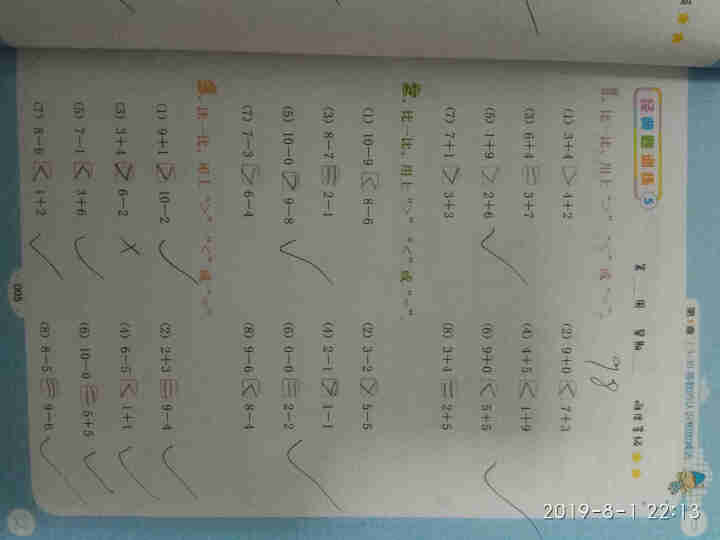 经典题训练 5
第 周 星期 自评等级
98
一、比一比，用上“>”“<”或“=”。
(1) 3+4 > 4+2
(2) 9+0 < 7+3
(3) 6+4 = 3+7
(4) 4+5 < 1+9
(5) 1+9 > 2+6
(6) 9+0 < 5+5
(7) 7+1 > 3+3
(8) 3+4 = 2+5
二、比一比，用上“>”“<”或“=”。
(1) 10-9 < 8-6
(2) 3-2 > 5-5
(3) 8-7 = 2-1
(4) 2-1 > 1-1
(5) 10-0 > 9-8
(6) 0-0 = 2-2
(7) 7-3 > 6-4
(8) 9-6 < 8-4
三、比一比，用上“>”“<”或“=”。
(1) 9+1 > 10-2
(2) 2+3 = 9-4
(3) 3+4 > 6-2
(4) 6-5 < 1+1
(5) 7-1 < 3+6
(6) 10-0 = 5+5
(7) 8-6 < 1+2
(8) 8-5 = 9-6
005
2019-8-1 22:13